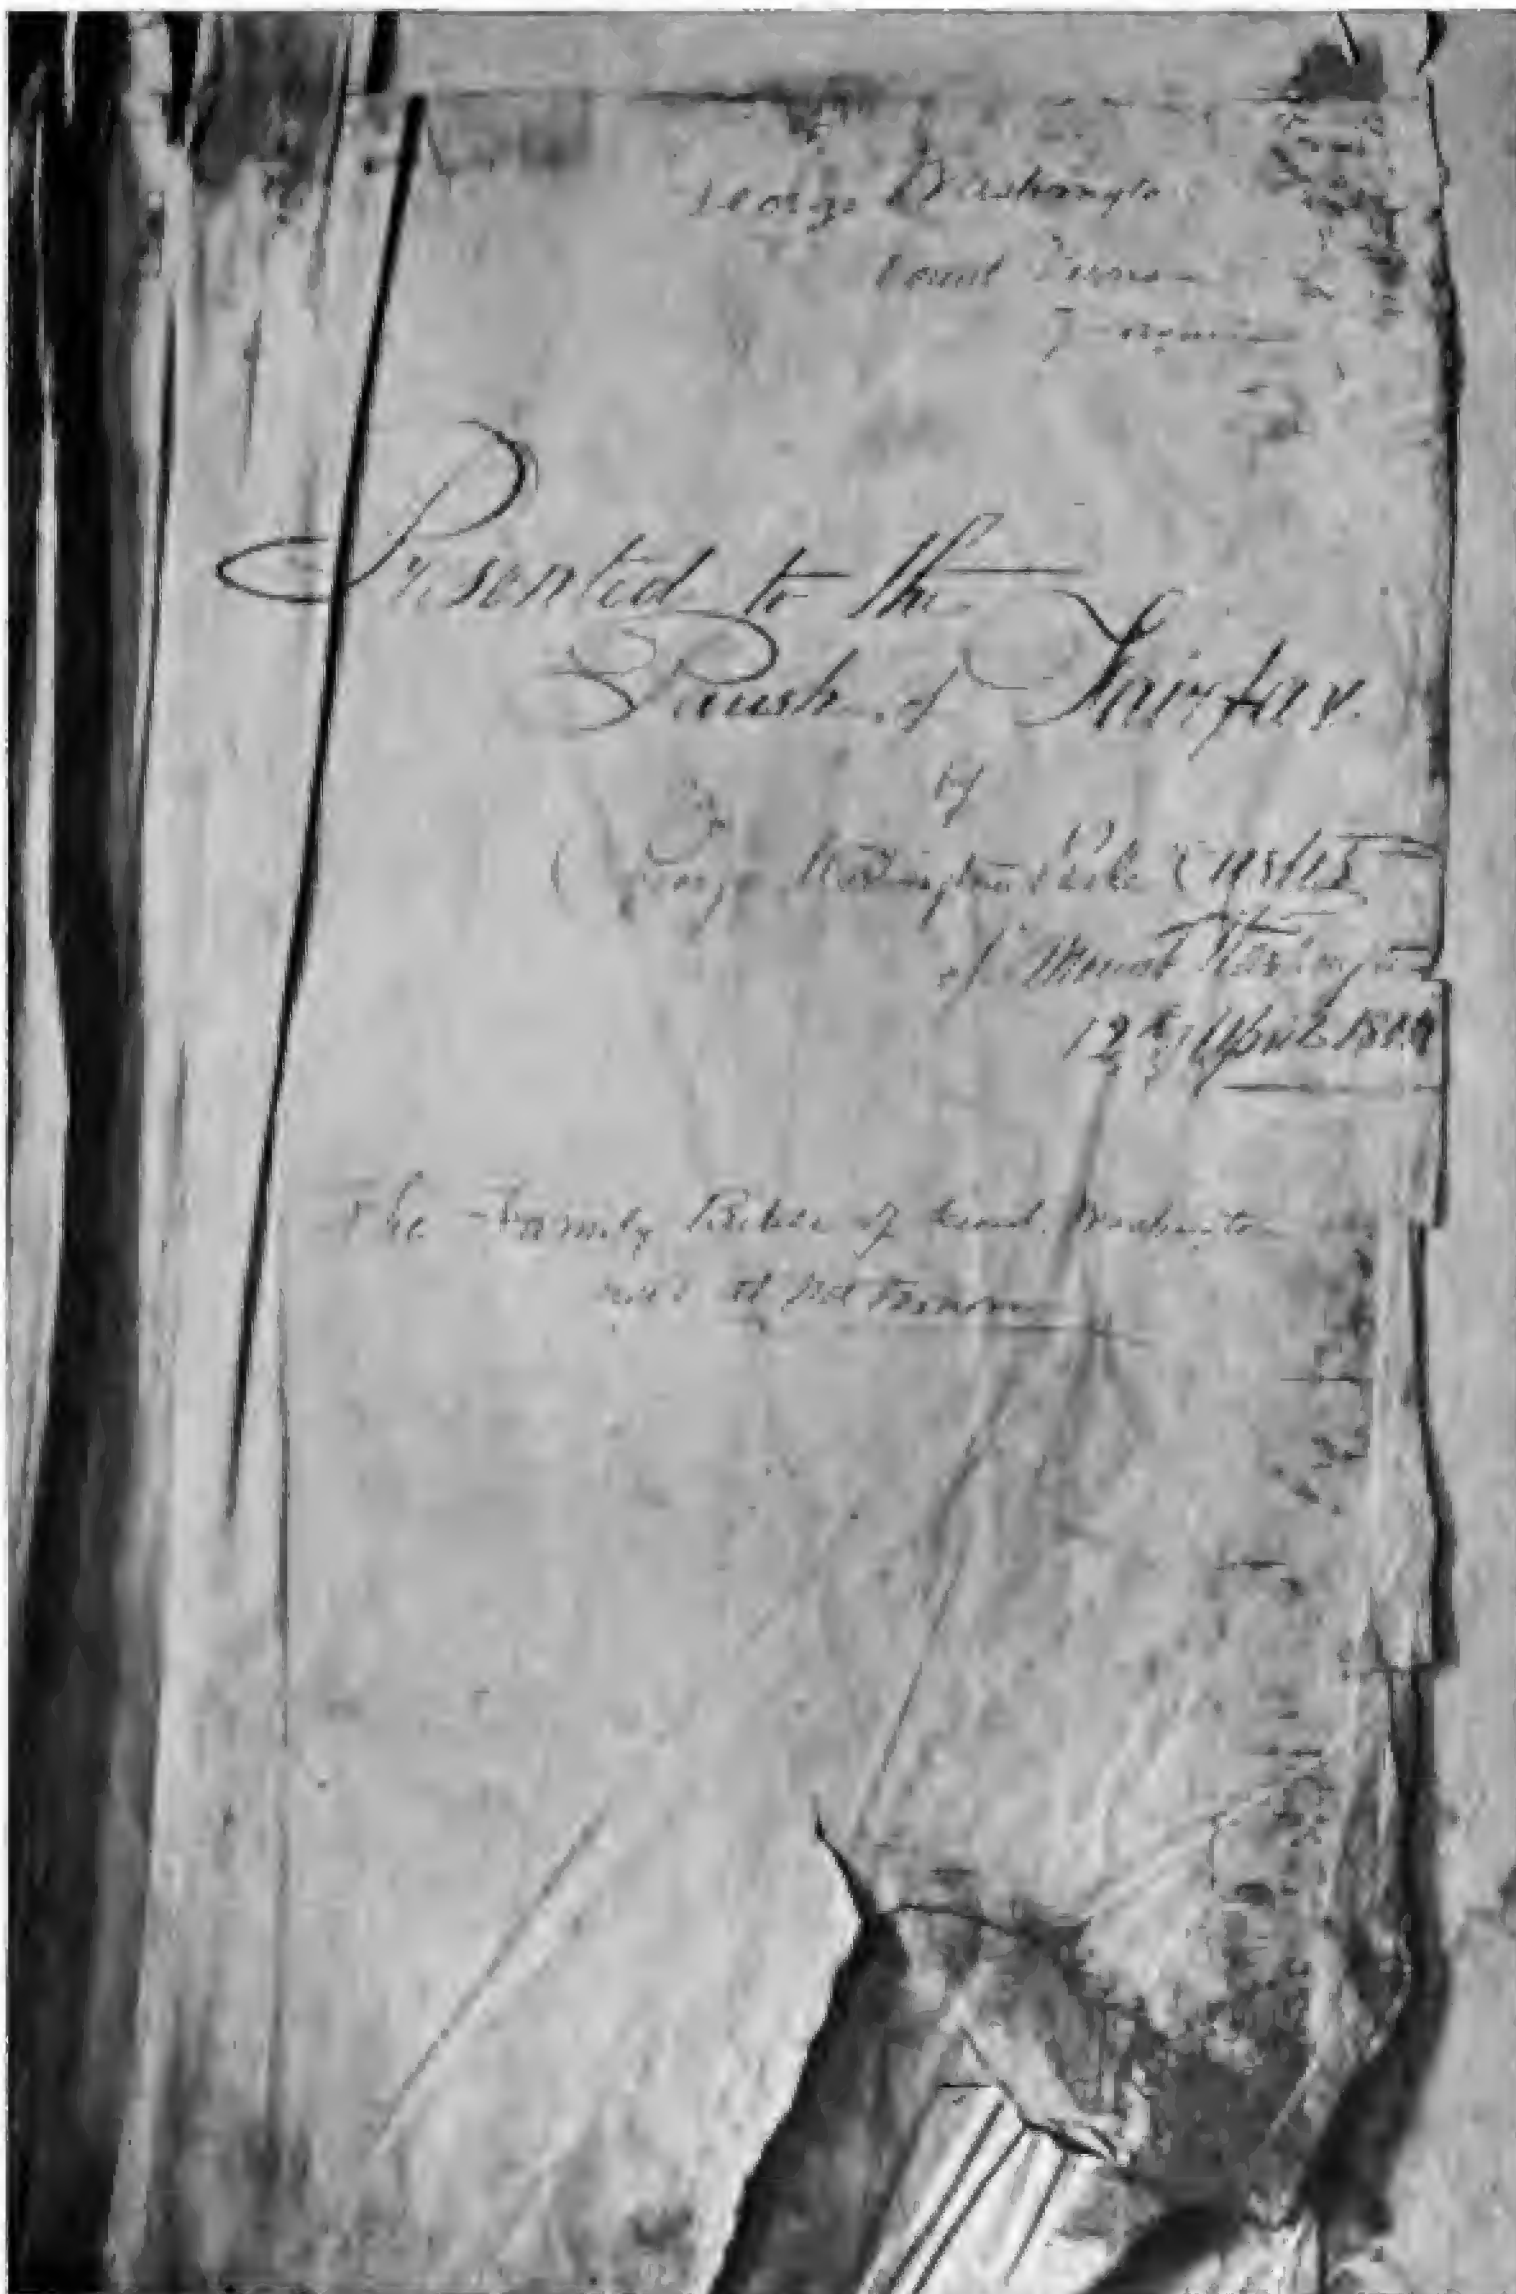 George Washingto
ount Vernon
Presented to the
Parish of Fairfax.
by
George Washington Parke Custis
of Mount Washington
12th April
The Family Bible of Genl. Washington
at Mt Vernon